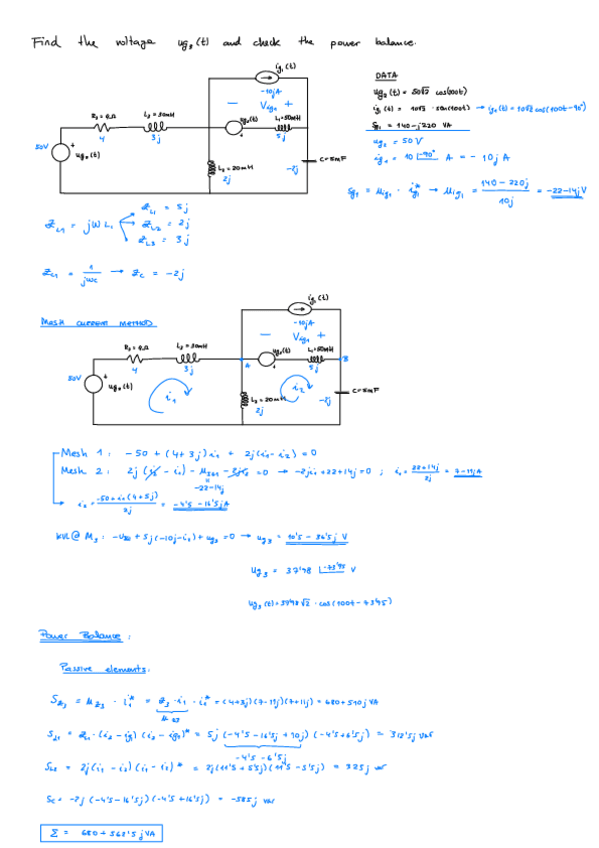 Find the voltage ug₃(t) and check the power balance.
ig₁(t)
-10jA
− Vig₁ +
R₃ = 4Ω
4
L₃ = 30mH
3j
ug₃(t)
L₁=50mH
5j
50V
+
ug₂(t)
L₂ = 20mH
2j
-2j
C=5mF
DATA
ug₂(t) = 50√2 cos(100t)
ig₁(t) = 10√2 · sen(100t) → ig₁(t) = 10√2 cos(100t-90°)
Sg₁ = 140-j220 VA
ug₂ = 50V
ig₁ = 10 |-90° A = -10jA
Sg₁ = Uig₁ · ig₁* → Uig₁ = (140-220j)/10j = -22-14jV
ZL₁ = jωL₁
ZL1 = 5j
ZL2 = 2j
ZL3 = 3j
= 1/jωc → Zc = -2j
MESH CURRENT METHOD
ig₁(t)
-10jA
− Vig₁ +
R₃ = 4Ω
4
L₃ = 30mH
3j
A
ug₃(t)
L₁=50mH
5j
B
50V
+
ug₂(t)
i₁
L₂ = 20mH
2j
i₂
-2j
C=5mF
Mesh 1: -50 + (4+3j)i₁ + 2j(i₁-i₂) = 0
Mesh 2: 2j(i₂-i₁) - Uig₁ - 2ji₂ = 0 → -2ji₁+22+14j=0 ; i₁= (22+14j)/2j = 7-11jA
-22-14j
i₂ = (-50+i₁(4+5j))/2j = -4'5-16'5jA
KVL@M₃: + 5j(-10j-i₂) + ug₃ = 0 → ug₃ = 10'5-36'5j V
Ug₃ = 37'98 |-73'95 V
ug₃(t)=37'98√2 · cos(100t-73'95)
Power Balance:
Passive elements:
Sz₃ = Uz₃ · i₁* = z₃·i₁ · i₁* = (4+3j)(7-11j)(7+11j) = 680+510j VA
Uz3
= ZL₁ · (i₂-ig₁)(i₂-ig₁)* = 5j(-4'5-16'5j+10j)(-4'5+6'5j) = 312'5j var
-4'5-6'5j
= 2j(i₁-i₂)(i₁-i₂)* = 2j(11'5+5'5j)(11'5-5'5j) = 325j var
Sc = -2j(-4'5-16'5j)(-4'5+16'5j) = -585j var
Σ = 680+562'5jVA